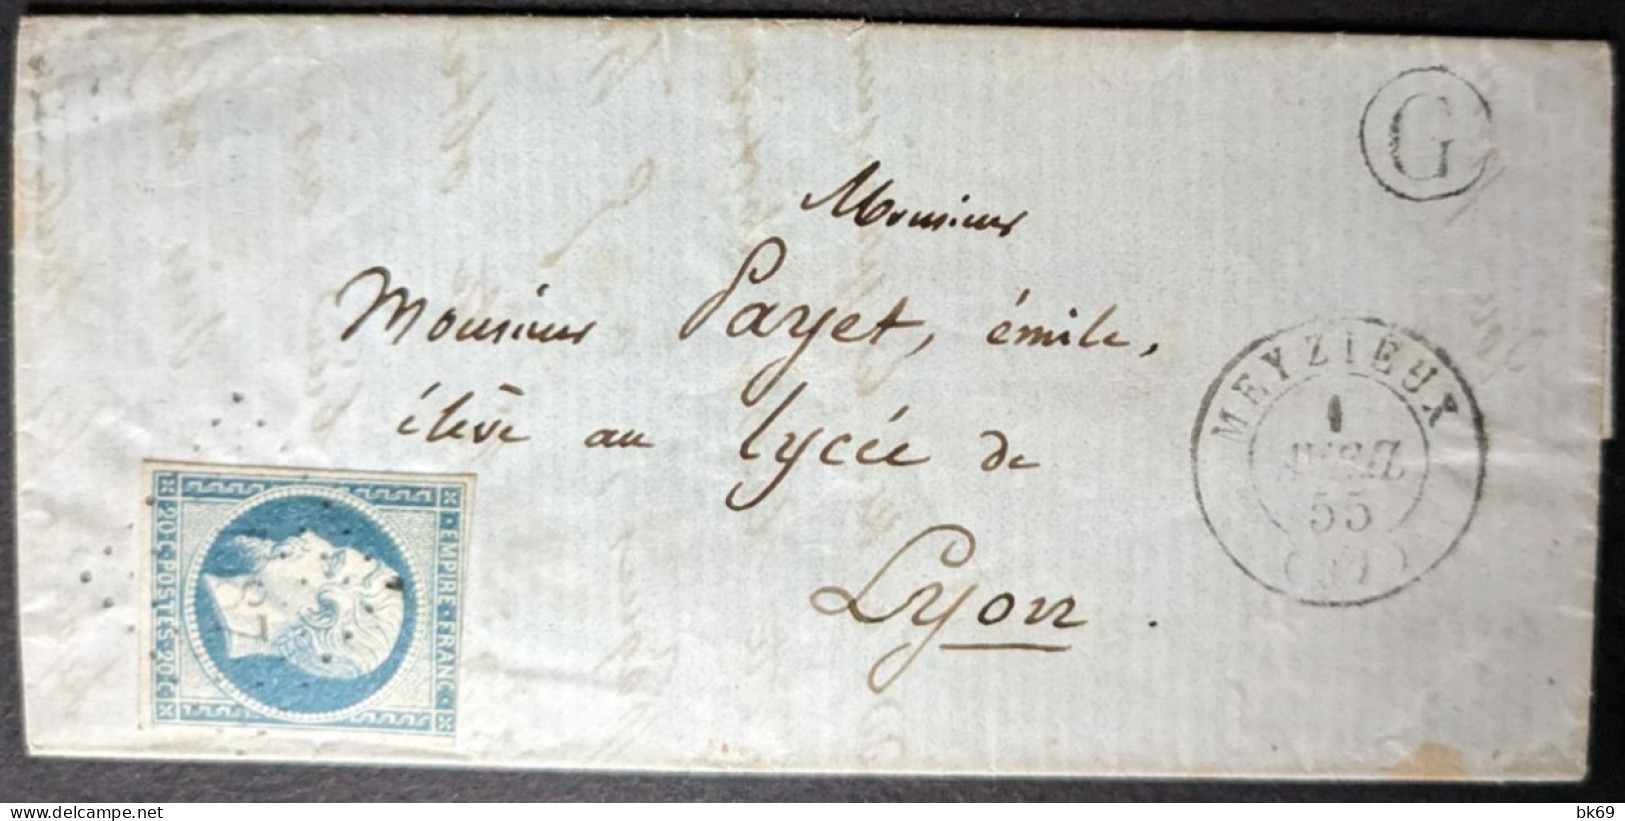 G
Monsieur
Monsieur Payet, émile,
élève au lycée de
Lyon.
MEYZIEUX
1
AVRIL
55
EMPIRE · FRANC
20 · C · POSTES · 20 · C
delcampe.net
bk69